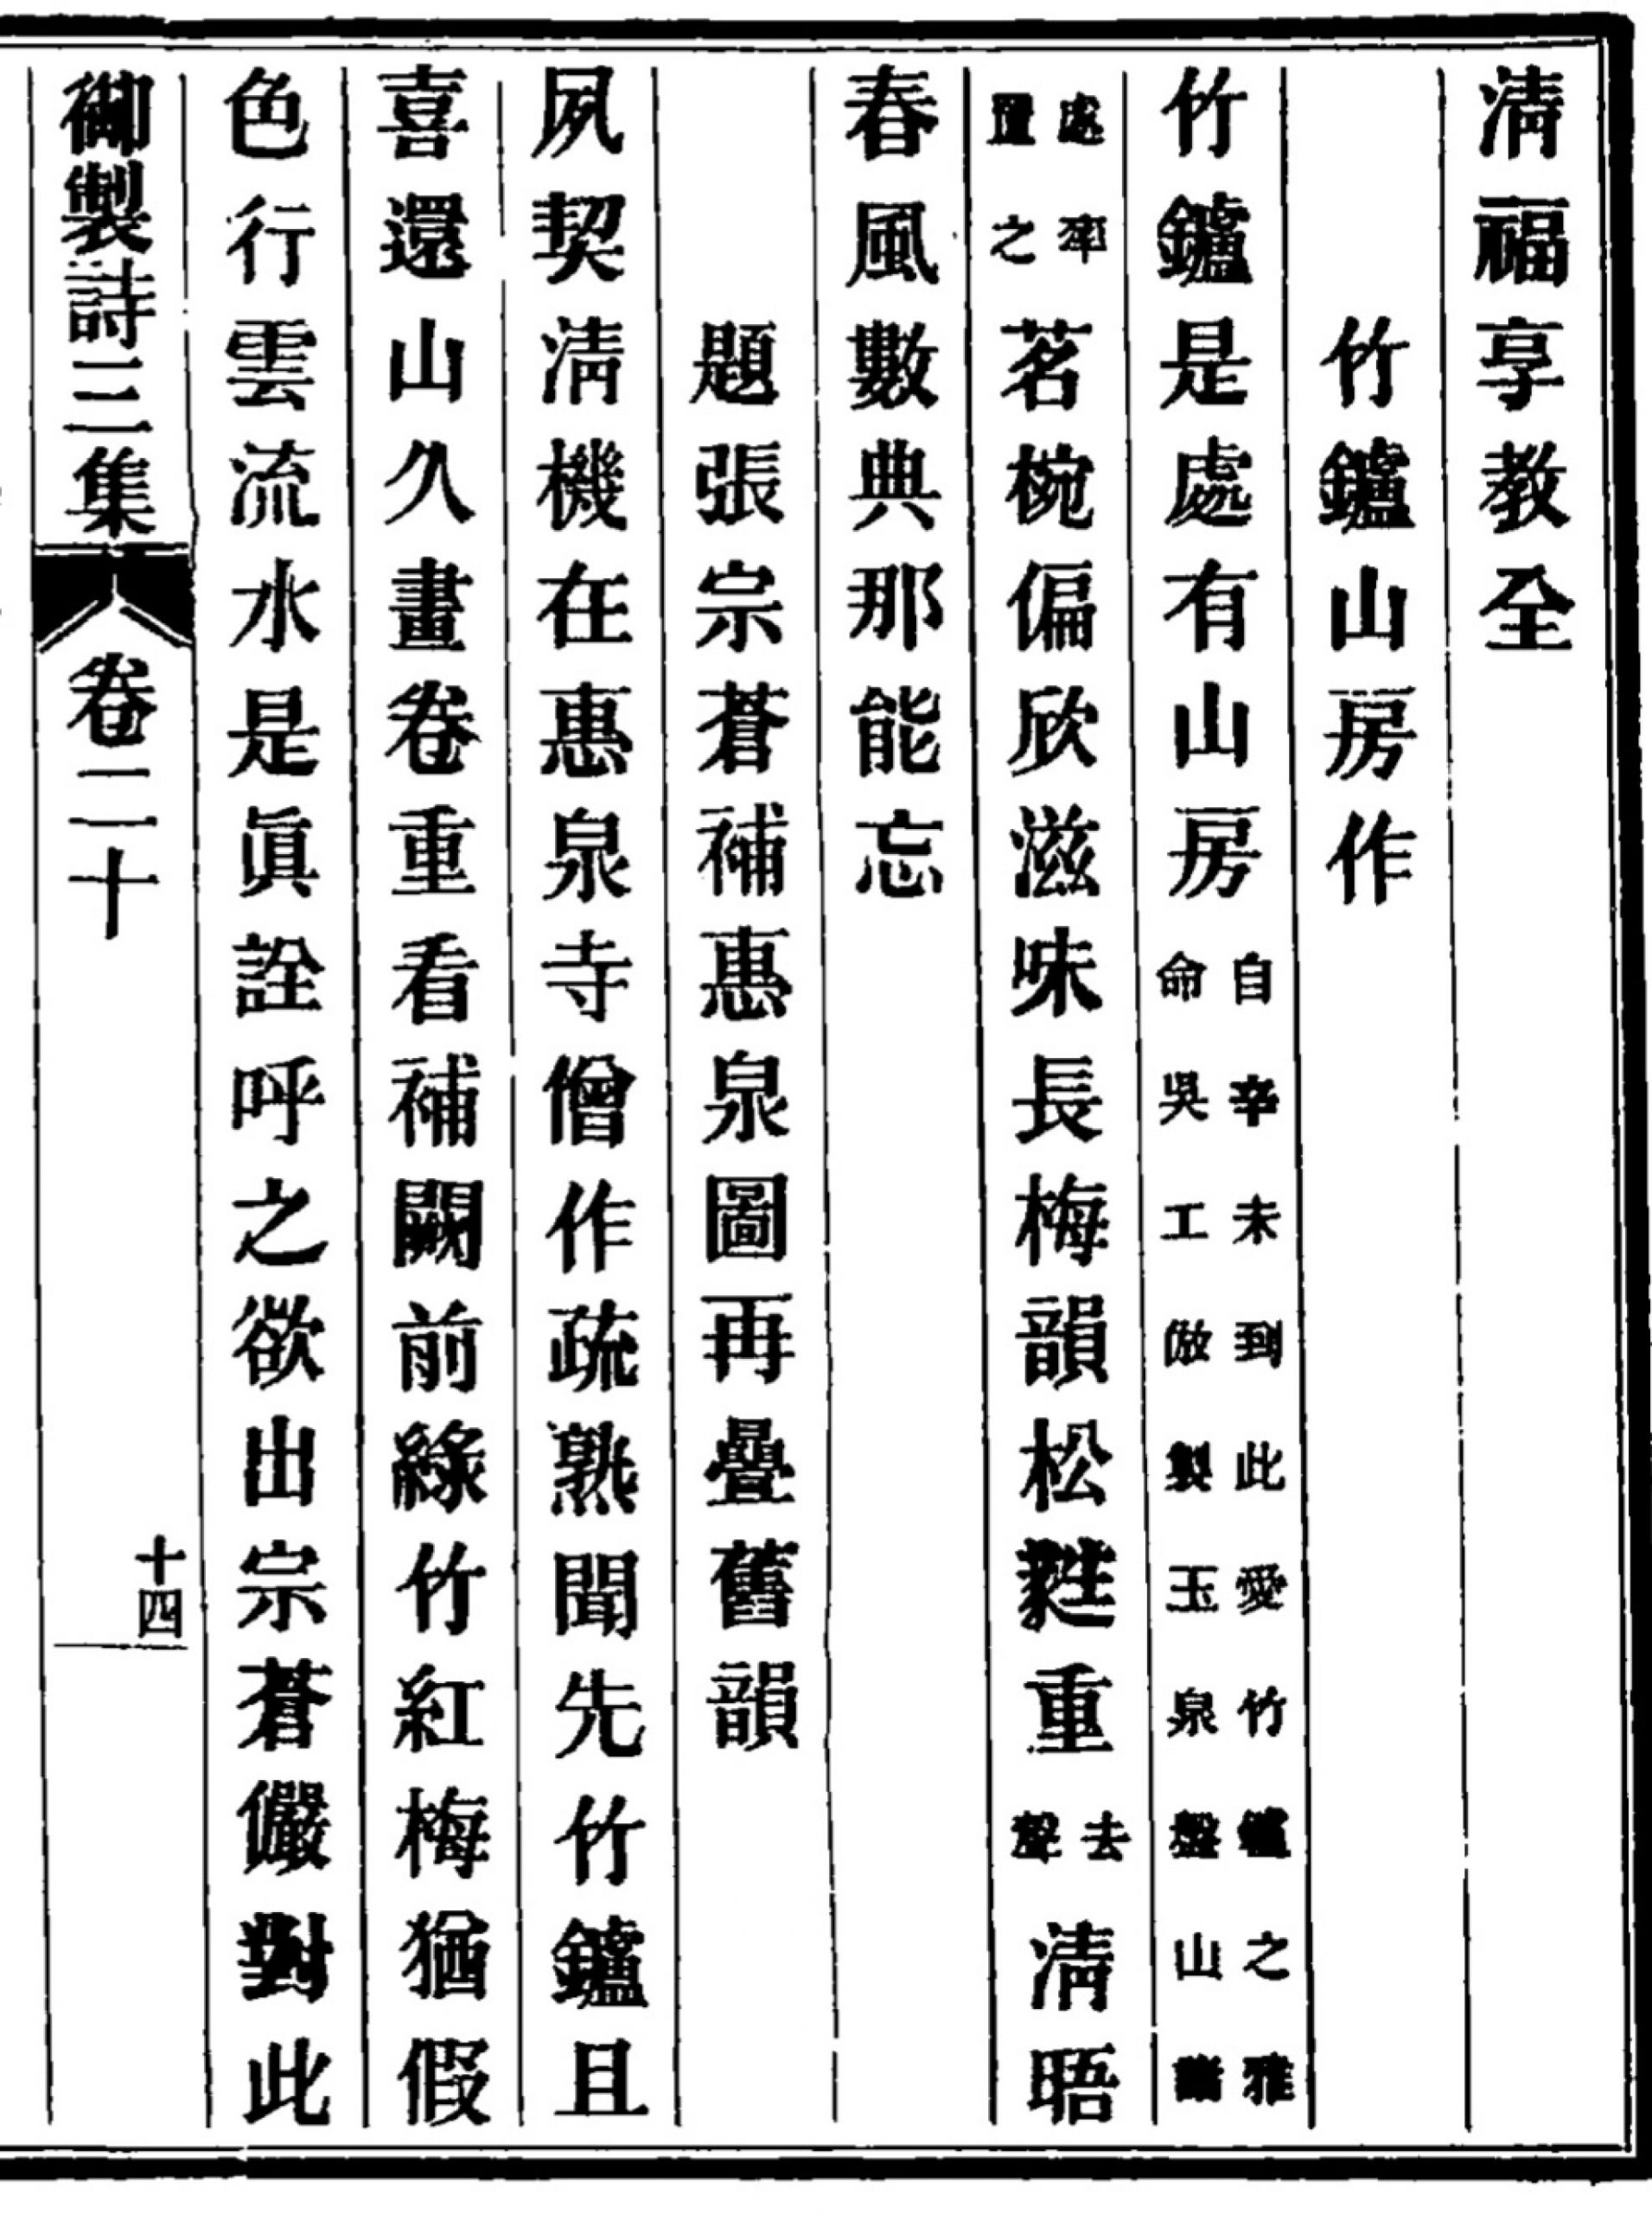 淸福享教全
竹鑪山房作
竹鑪是處有山房自辛未到此愛竹鑪之雅命吳工倣製玉泉盤山諸
處率置之茗椀偏欣滋味長梅韻松蕤重去聲淸晤
春風數典那能忘
題張宗蒼補惠泉圖再疊舊韻
夙契淸機在惠泉寺僧作疏熟聞先竹鑪且
喜還山久畫卷重看補闕前綠竹紅梅猶假
色行雲流水是眞詮呼之欲出宗蒼儼對此
御製詩三集 卷二十 十四